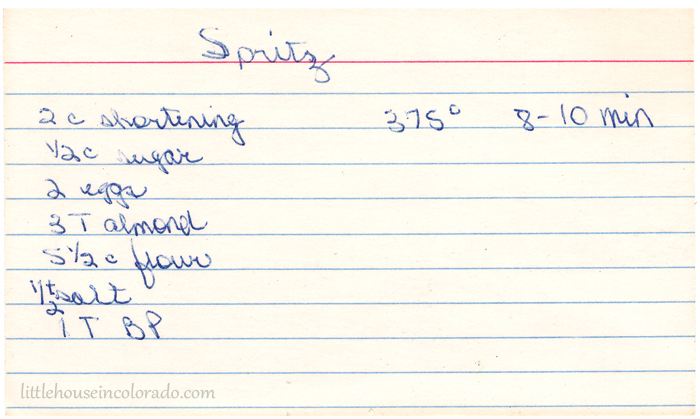 Spritz
2 c shortening 375° 8-10 min
1/2 c sugar
2 eggs
3 T almond
5 1/2 c flour
1/2 t salt
1 T BP
littlehouseincolorado.com